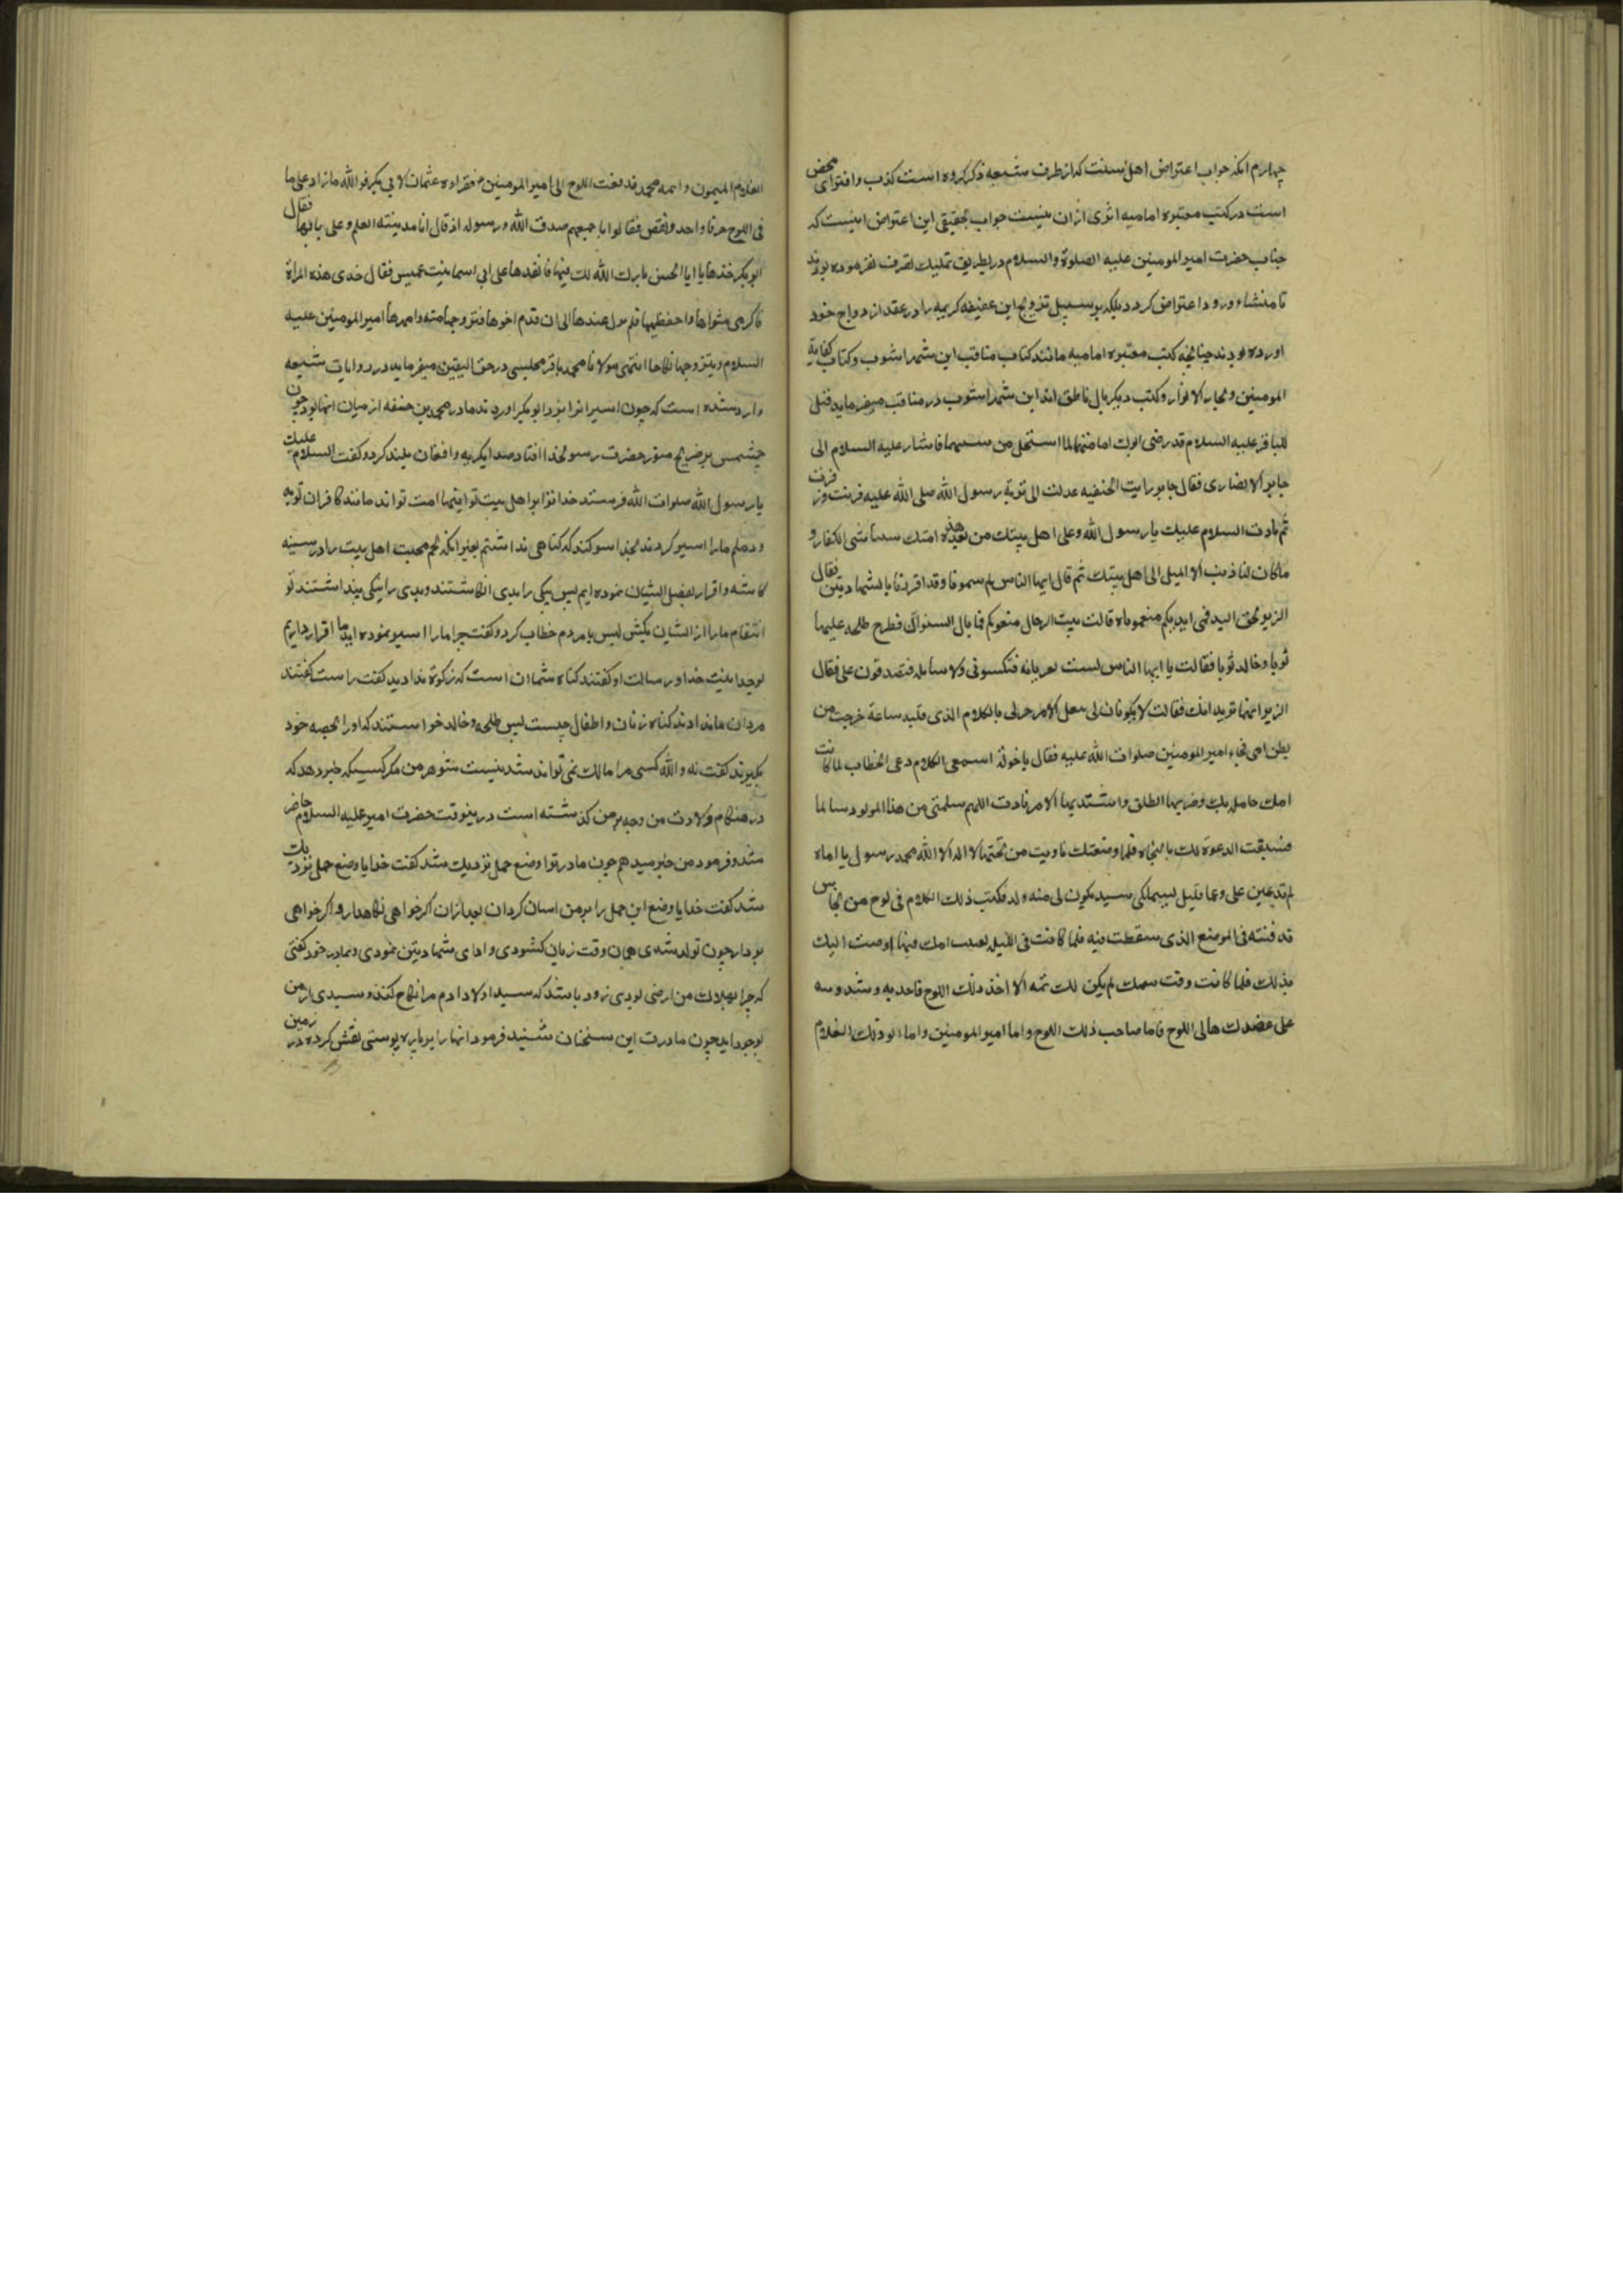 چهارم انکه جواب اعتراض اهل سنت که از طرف شیعه ذکر کرده است کذب و افترای محض
است در کتب معتبره امامیه اثری ازان نیست جواب تحقیقی این اعتراض اینست که
جناب حضرت امیر المومنین علیه الصلوة والسلام در بطریق تملیک تصرف نفرموده بودند
تا منشاء ورود اعتراض کردد بلکه بر سبیل تزویج این عفیفه کریمه را در عقد ازدواج خود
اورده بودند چنانچه کتب معتبره امامیه مانند کتاب مناقب ابن شهراشوب و کتاب کفایة
المومنین و بحار الانوار و کتب دیکر بال ناطق اند ابن شهراشوب در مناقب میفرماید قیل
للباقر علیه السلام قد رضی ابوک امامتهما لما استحل من سبیهما فاشار علیه السلام الی
جابر الانصاری فقال جابر رایت الحنفیه عدلت الی تربة رسول الله صلی الله علیه فرنت وزفرت
ثم نادت السلام علیک یا رسول الله وعلی اهل بیتک من بعدک هذه امتک سبتنا سبی الکفار و
ماکان لنا ذنب الا المیل الی اهل بیتک ثم قال ایها الناس لم سبیتمونا وقد اقررنا بالشهادتین فقال
الزبیر لحق الله فی ایدیکم منعتموناه قالت هب الرجال منعوکم فما بال النسوان فطرح طلحه علیها
ثوبا وخالد ثوبا فقالت یا ایها الناس لست بعریانه فتکسونی ولا سایله فتصدقون علی فقال
الزبیر انهما یریدانک فقالت لا یکونان لی ببعل الا من خبرنی بالکلام الذی قلته ساعة خرجت من
بطن امی فجاء امیر المومنین صلوات الله علیه فقال یا خولة اسمعی الکلام وعی الخطاب لما کانت
امک حامل بک وضربها الطلق واشتد بها الامر نادت اللهم سلمنی من هذا المولود سالما
فسبقت الدعوة لک بالنجاة فلما وضعتک نادیت من تحتها لا اله الا الله محمد رسول الله یا اماه
لم تدعین علی وعما قلیل سیملکنی سید یکون لی منه ولد فکتب ذلک الکلام فی لوح من نحاس
قد فنته فی الموضع الذی سقطت فیه فلما کانت فی اللیله امک فیها اوصت الیک
بذلک فلما کانت وقت سبیک لم یکن لک همه الا اخذ ذلک اللوح فاخذتیه وشددتیه
علی عضدک هاتی اللوح فانا صاحب ذلک اللوح وانا امیر المومنین وانا ابو ذلک الغلام
الغلام المیمون واسمه محمد فدفعت اللوح الی امیر المومنین فقراه عثمان لابی بکر فوالله مازاد علی ما
فی اللوح حرفا واحد ولا نقص فقالوا باجمعهم صدق الله ورسوله اذ قال انا مدینته العلم وعلی بابها فقال
ابو بکر خذها یا ابا الحسن بارک الله لک فیها فانفذها علی الی اسما بنت عمیس فقال خذی هذه المراة
فاکرمی مثواها واحفظیها فلم تزل عندها الی ان قدم اخوها فتزوجها منه وامهرها امیر المومنین علیه
السلام وتزوجها نکاحا انتهی مولانا محمد باقر مجلسی در حق الیقین میفرماید در روایات شیعه
وارد شده است که چون اسیرانرا نزد ابو بکر اوردند مادر محمد بن حنفه از میان انها بود چون
چشمش بر ضریح منور حضرت رسول خدا افتاد صدا بکریه وافغان بلند کرد و کفت السلام علیک
یا رسول الله صلوات الله فرستد خدا ترا بر اهل بیت تو اینها امت تو اند مانند کافران نوبه
و دیلم مارا اسیر کردند بخدا سوکند که کناهی نداشتیم بغیر انکه تخم محبت اهل بیت را در سینه
کاشته و اقرار بفضل ایشان نموده ایم پس نیکی را بدی انکاشتند و بدی را نیکی پنداشتند تو
انتقام ما را از ایشان بکش پس بامردم خطاب کرد و کفت چرا مارا اسیر نموده اید ما اقرار داریم
بوحدانیت خدا و رسالت او کفتند کناه شما ان است که زکوة ندادید کفت راست کفتند
مردان ما ندادند کناه زنان و اطفال چیست پس طلحه و خالد خواستند که او را بحصه خود
بکیرند کفت نه والله کسی مرا مالک نمی تواند شد نیست شوهر من مکر کسیکه خبر دهد که
در هنکام ولادت من وچه بر من کذشته است درینوقت حضرت امیر علیه السلام حاضر
شد و فرمود من خبر میدهم چون مادر ترا وضع حمل نزدیک شد کفت خدایا وضع حمل نزدیک
شد کفت خدایا وضع این حمل را بر من اسان کردان بعد ازان اکر خواهی نکاهدار و اکر خواهی
بردار چون تولد شدی همان وقت زبان کشودی و ادای شهادتین نمودی و بمادر خود کفتی
که چرا بهلاک من راضی بودی زود باشد که سید اولاد ادم مرا نکاح کند و سیدی از من
بوجود اید چون مادرت این سخنان شنید فرمود انها را بر پاره پوستی نقش کرده در زمین